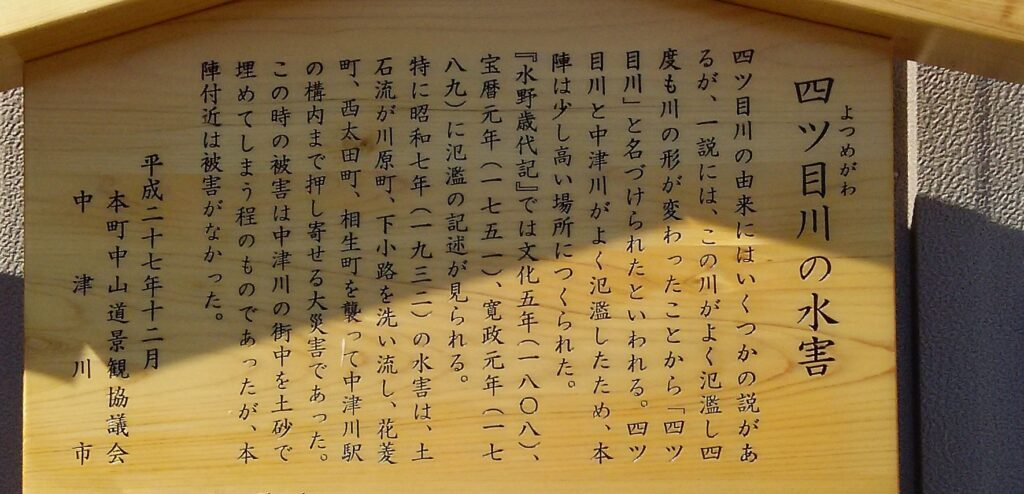 四ツ目川の水害
よつめがわ
四ツ目川の由来にはいくつかの説があ
るが、一説には、この川がよく氾濫し四
度も川の形が変わったことから「四ツ
目川」と名づけられたといわれる。四ツ
目川と中津川がよく氾濫したため、本
陣は少し高い場所につくられた。
『水野歳代記』では文化五年(一八〇八)、
宝暦元年(一七五一)、寛政元年(一七
八九)に氾濫の記述が見られる。
特に昭和七年(一九三二)の水害は、土
石流が川原町、下小路を洗い流し、花菱
町、西太田町、相生町を襲って中津川駅
の構内まで押し寄せる大災害であった。
この時の被害は中津川の街中を土砂で
埋めてしまう程のものであったが、本
陣付近は被害がなかった。
平成二十七年十二月
本町中山道景観協議会
中津川市